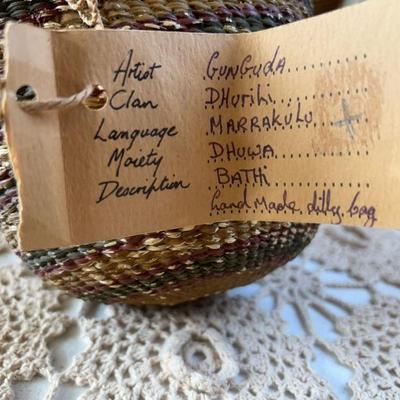 Artist GUNGUDA
Clan DHURILI
Language MARRAKULU
Moiety DHUWA
Description BATHI
hand Made dilly bag